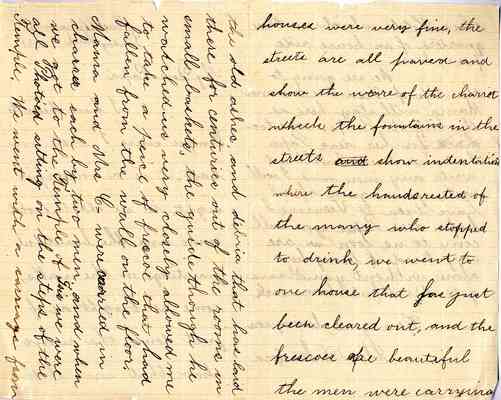 houses were very fine, the
streets are all paved and
show the weare of the charrot
wheels the fountains in the
streets and show indentations
where the hands rested of
the many who stopped
to drink, we went to
one house that has just
been cleared out, and the
frescoes are beautiful
the men were carrying
the old ashes, and debris that has laid
there for centuries out of the rooms in
small baskets, the guide though he
watched us very closely allowed me
to take a piece of frescoe that had
fallen from the wall on the floor
Mama and Mrs C- were carried in
chairs each by two men, and when
we got to the Temple of Isis we were
all Photoed sitting on the steps of the
Temple, We went with a carriage from